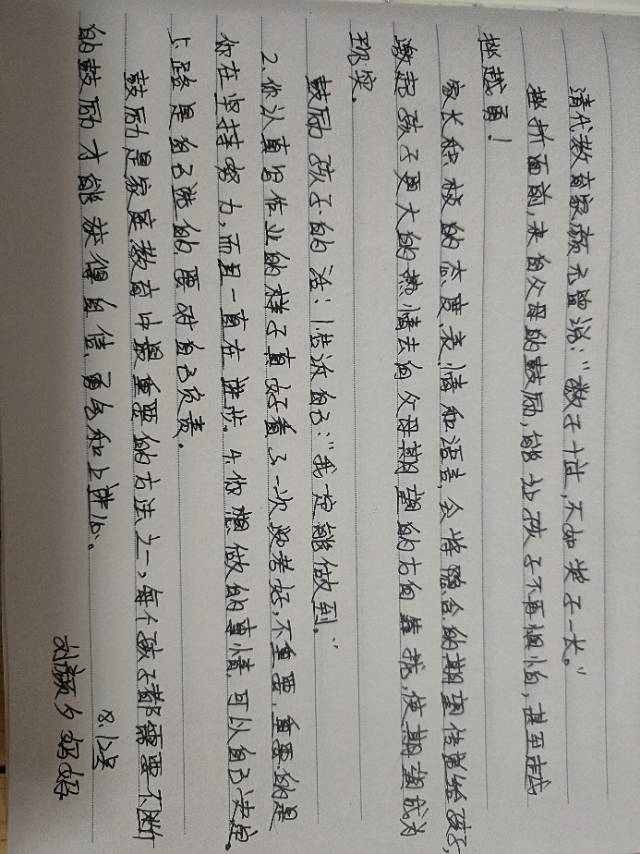 清代教育家颜元曾说：“数子十过，不如奖子一长。”
挫折面前，来自父母的鼓励，能让孩子不再惧怕，甚至越
挫越勇！
家长积极的态度、表情和语言，会将隐含的期望传递给孩子，
激起孩子更大的热情去向父母期望的方向靠拢，使期望成为
现实。
鼓励孩子的话：1.告诉自己：“我一定能做到。”
2.你认真写作业的样子真好看 3.一次没考好，不重要，重要的是
你在坚持努力，而且一直在进步。4.你想做的事情，可以自己决定。
5.路是自己选的，要对自己负责。
鼓励是家庭教育中最重要的方法之一，每个孩子都需要不断
的鼓励才能获得自信、勇气和上进心。
8.12号
刘颜夕妈妈